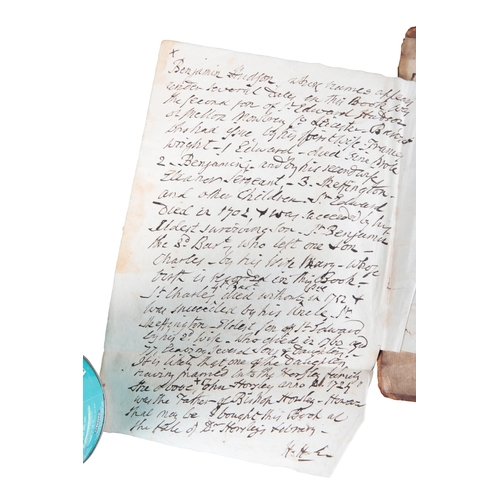 x
Benjamin Hudson, whose names appear
under several dates on this Book was
the second son of Sr Edward Hudson
of Melton Mowbray Co Leicester Baronet
who had Issue by his first wife Frances
Wright - 1 Edward - died
2 - Benjamin, and by his second wife
Eleanor Sergeant - 3. Skeffington -
and other Children - Sr Edward
Died in 1702, & was succeeded by his
Eldest surviving Son - Sr Benjamin
the 3d Bart, who left one Son -
Charles - by his wife Mary - whose
birth is recorded in this Book -
Sr Charles died without Issue in 1752 &
was succeeded by his Uncle Sr
Skeffington - Eldest Son of Sr Edward
by his 2d wife - who died in 1760 aged
77 leaving several Sons & Daughters.
It is likely that one of the Daughters
having married into the Horsley family
the above & John Horsley
was the Father of Bishop Horsley - Hence
that may be I bought this Book at
the Sale of Dr Horsley's Library -